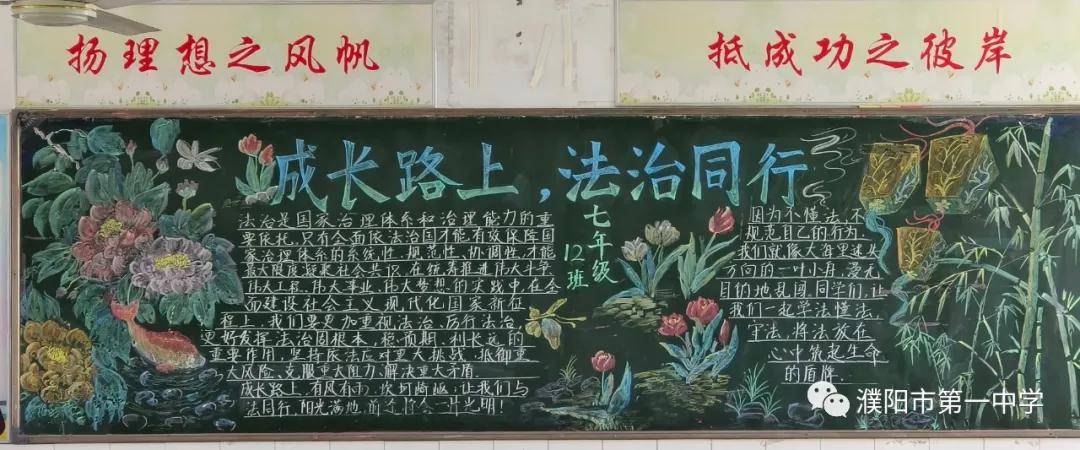 扬理想之风帆
抵成功之彼岸
成长路上，法治同行
七年级
12班
法治是国家治理体系和治理能力的重
要依托，只有全面依法治国才能有效保障国
家治理体系的系统性、规范性、协调性，才能
最大限度凝聚社会共识，在统筹推进伟大斗争、
伟大工程、伟大事业、伟大梦想的实践中，在全
面建设社会主义现代化国家新征
程上，我们要更加重视法治、厉行法治，
更好发挥法治固根本、稳预期、利长远的
重要作用，坚持依法应对重大挑战、抵御重
大风险、克服重大阻力、解决重大矛盾。
成长路上，有风有雨，坎坷崎岖；让我们与
法同行，阳光满地，前途将会一片光明！
因为不懂法，不
规范自己的行为，
我们就像大海里迷失
方向的一叶小舟，漫无
目的地乱闯，同学们，让
我们一起学法懂法，
守法，将法放在
心中筑起生命
的盾牌.
濮阳市第一中学